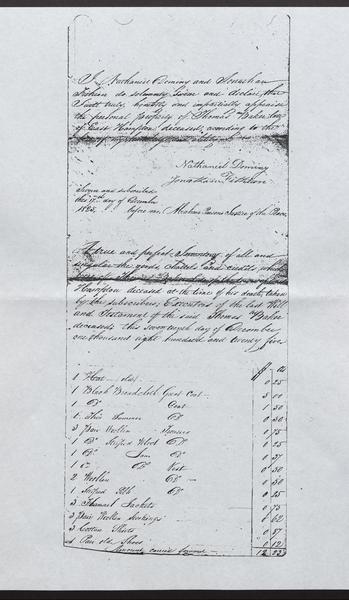 I Nathaniel Dominy and Jonathan
Fithian do solemnly swear and declare, that
I will truly, honestly and impartially appraise
the personal property of Thomas Baker late
of East Hampton deceased, according to the
best of my knowledge and ability
Nathaniel Dominy
Jonathan Fithian
Sworn and subscribed
this 17th day of December
1825. before me, Abraham Parsons Justice of the Peace
A true and perfect Inventory of all and
singular the goods, chattels and credits, which
were of Thomas Baker
Hampton deceased at the time of his death, taken
by the subscribers, Executors of the last Will
and Testament of the said Thomas Baker
deceased; this seventeenth day of December
one thousand eight hundred and twenty five
$ cts
1 Hat old 0 25
1 Black Broadcloth Great Coat 3 00
1 Do Coat 1 50
1 Thin Summer Do 0 50
3 Pair Woollen Trousers 0 75
1 Do Striped Velvet Do 1 25
1 Do Do 0 37
1 Do Do Vest 0 50
2 Woollen Do 0 50
1 Striped Do 0 25
3 Flannel Jackets 0 75
3 Pair Woollen Stockings 0 62
3 Cotton Shirts 0 87
Pair old Shoes 0 12
Amount carried forward 12